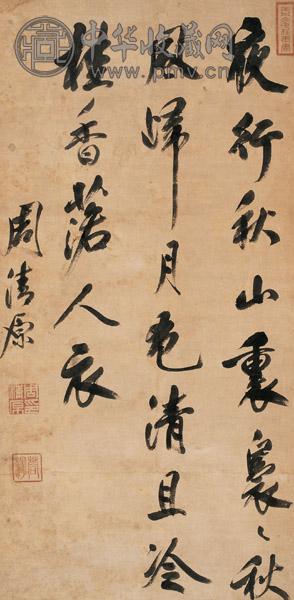 夜行秋山裏裊〻秋
風歸月色清且冷
桂香落人衣
周清原
中华收藏网